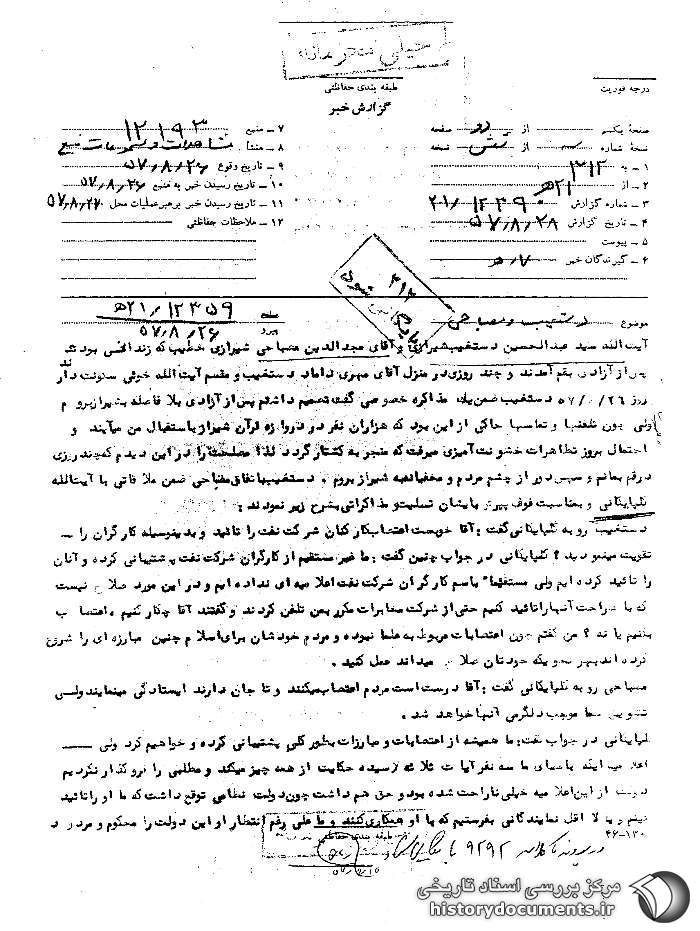 خیلی محرمانه
طبقه بندی حفاظتی
درجه فوریت
گزارش خبر
صفحه یکم از دو صفحه
نسخه شماره از شش نسخه
۱ ـ به ۳۱۲
۲ ـ از ۲۱ ه‍
۳ ـ شماره گزارش
۴ ـ تاریخ گزارش ۵۷٫۸٫۲۸
۵ ـ پیوست
۶ ـ گیرندگان خبر
۷ ـ منبع ۱۲۱۹۳
۸ ـ منشأ مشاهدات و مسموعات منبع
۹ ـ تاریخ وقوع ۵۷٫۸٫۲۶
۱۰ ـ تاریخ رسیدن خبر به منبع ۵۷٫۸٫۲۶
۱۱ ـ تاریخ رسیدن خبر برهبر عملیات محل ۵۷٫۸٫۲۷
۱۲ ـ ملاحظات حفاظتی
۳۱۲
موضوع دستغیب و مصباحی
پیرو ۲۱/۱۲۳۵۹ ه‍
۵۷٫۸٫۲۶
آیت الله سید عبدالحسین دستغیب شیرازی و آقای مجدالدین مصباحی شیرازی خطیب که زندانی بودند
پس از آزادی بقم آمدند و چند روزی در منزل آقای داماد دستغیب و مقسم آیت الله خوئی سکونت دارند
روز دستغیب ضمن یک مذاکره خصوصی گفت تصمیم داشتم پس از آزادی بلا فاصله بشیراز بروم
ولی چون تلفنها و تماسها حاکی از این بود که هزاران نفر در دروازه قرآن شیراز باستقبال من میآیند و
احتمال بروز تظاهرات خشونت آمیزی میرفت که منجر به کشتار گردد لذا مصلحت را در این دیدم که چند روزی
در قم بمانم و سپس دور از چشم مردم و مخفیانه به شیراز بروم. دستغیب باتفاق مصباحی ضمن ملاقاتی با آیت الله
گلپایگانی و بمناسبت فوت بایشان تسلیت و مذاکراتی بشرح زیر نمودند:
دستغیب رو به گلپایگانی گفت: آقا خوبست اعتصاب کارکنان شرکت نفت را تائید و بدینوسیله کارگران را
تقویت مینمودید؟ گلپایگانی در جواب چنین گفت: ما غیر مستقیم از کارگران شرکت نفت پشتیبانی کرده و آنان
را تائید کرده ایم ولی مستقیما" باسم کارگران شرکت نفت اعلامیه ای نداده ایم و در این مورد صلاح نیست
که با صراحت آنها را تائید کنیم حتی از شرکت مخابرات مکرر بمن تلفن کردند و گفتند آقا چکار کنیم. اعتصاب
بکنیم یا نه؟ من گفتم چون اعتصابات مربوط به علما نبوده و مردم خودشان برای اسلام چنین مبارزه ای را شروع
کرده اند بهر نحویکه خودتان صلاح میداند عمل کنید.
مصباحی رو به گلپایگانی گفت: آقا درست است مردم اعتصاب میکنند و تا جان دارند ایستادگی مینمایند ولی
تشویق شما موجب دلگرمی آنها خواهد شد.
گلپایگانی در جواب گفت: ما همیشه از اعتصابات و مبارزات بطور کلی پشتیبانی کرده و خواهیم کرد ولی
اعلامیه اینکه بامضای ما سه نفر آیات ثلاثه رسیده حکایت از همه چیز میکند و مطلبی را فروگذار نکردیم
دولت از این اعلامیه خیلی ناراحت شده بود و حق هم داشت چون دولت نظامی توقع داشت که ما او را تائید
کنیم و یا لا اقل نمایندگانی بفرستیم که با او همکاری کنند و ما علی رغم انتظار او این دولت را محکوم و مردود
۴۶-۱۳۰
طبقه بندی حفاظتی
مرکز بررسی اسناد تاریخی
historydocuments.ir